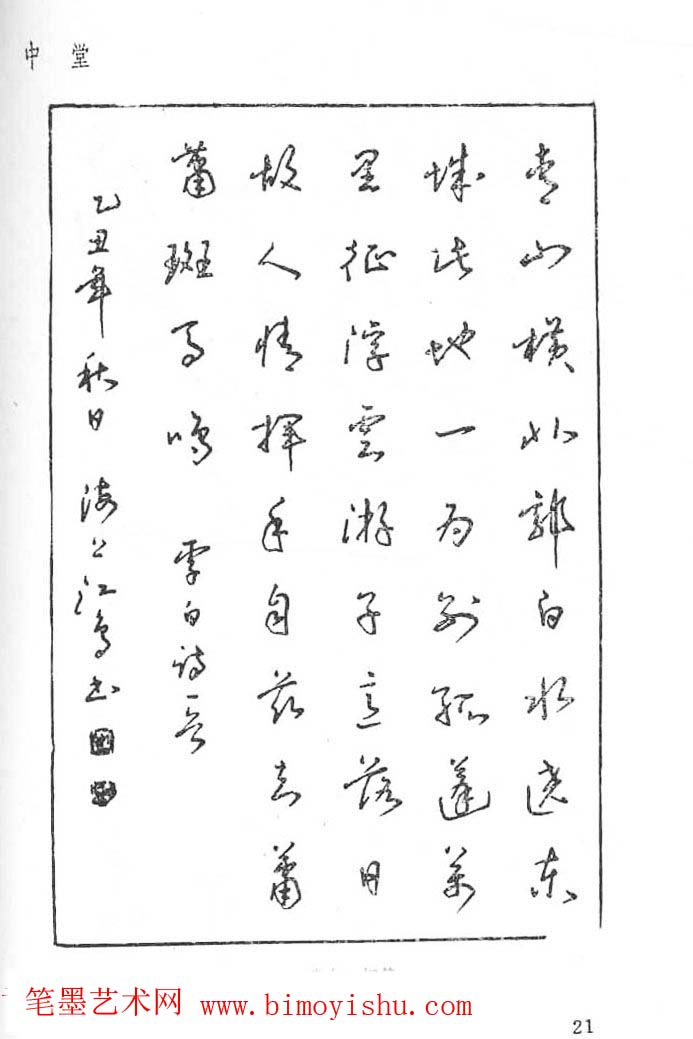 中堂
青山横北郭白水遶東
城此地一为别孤蓬萬
里征浮雲游子意落日
故人情揮手自兹去蕭
蕭斑马鸣 李白詩一首
乙丑年秋日 海上江鸟书
笔墨艺术网 www.bimoyishu.com
21